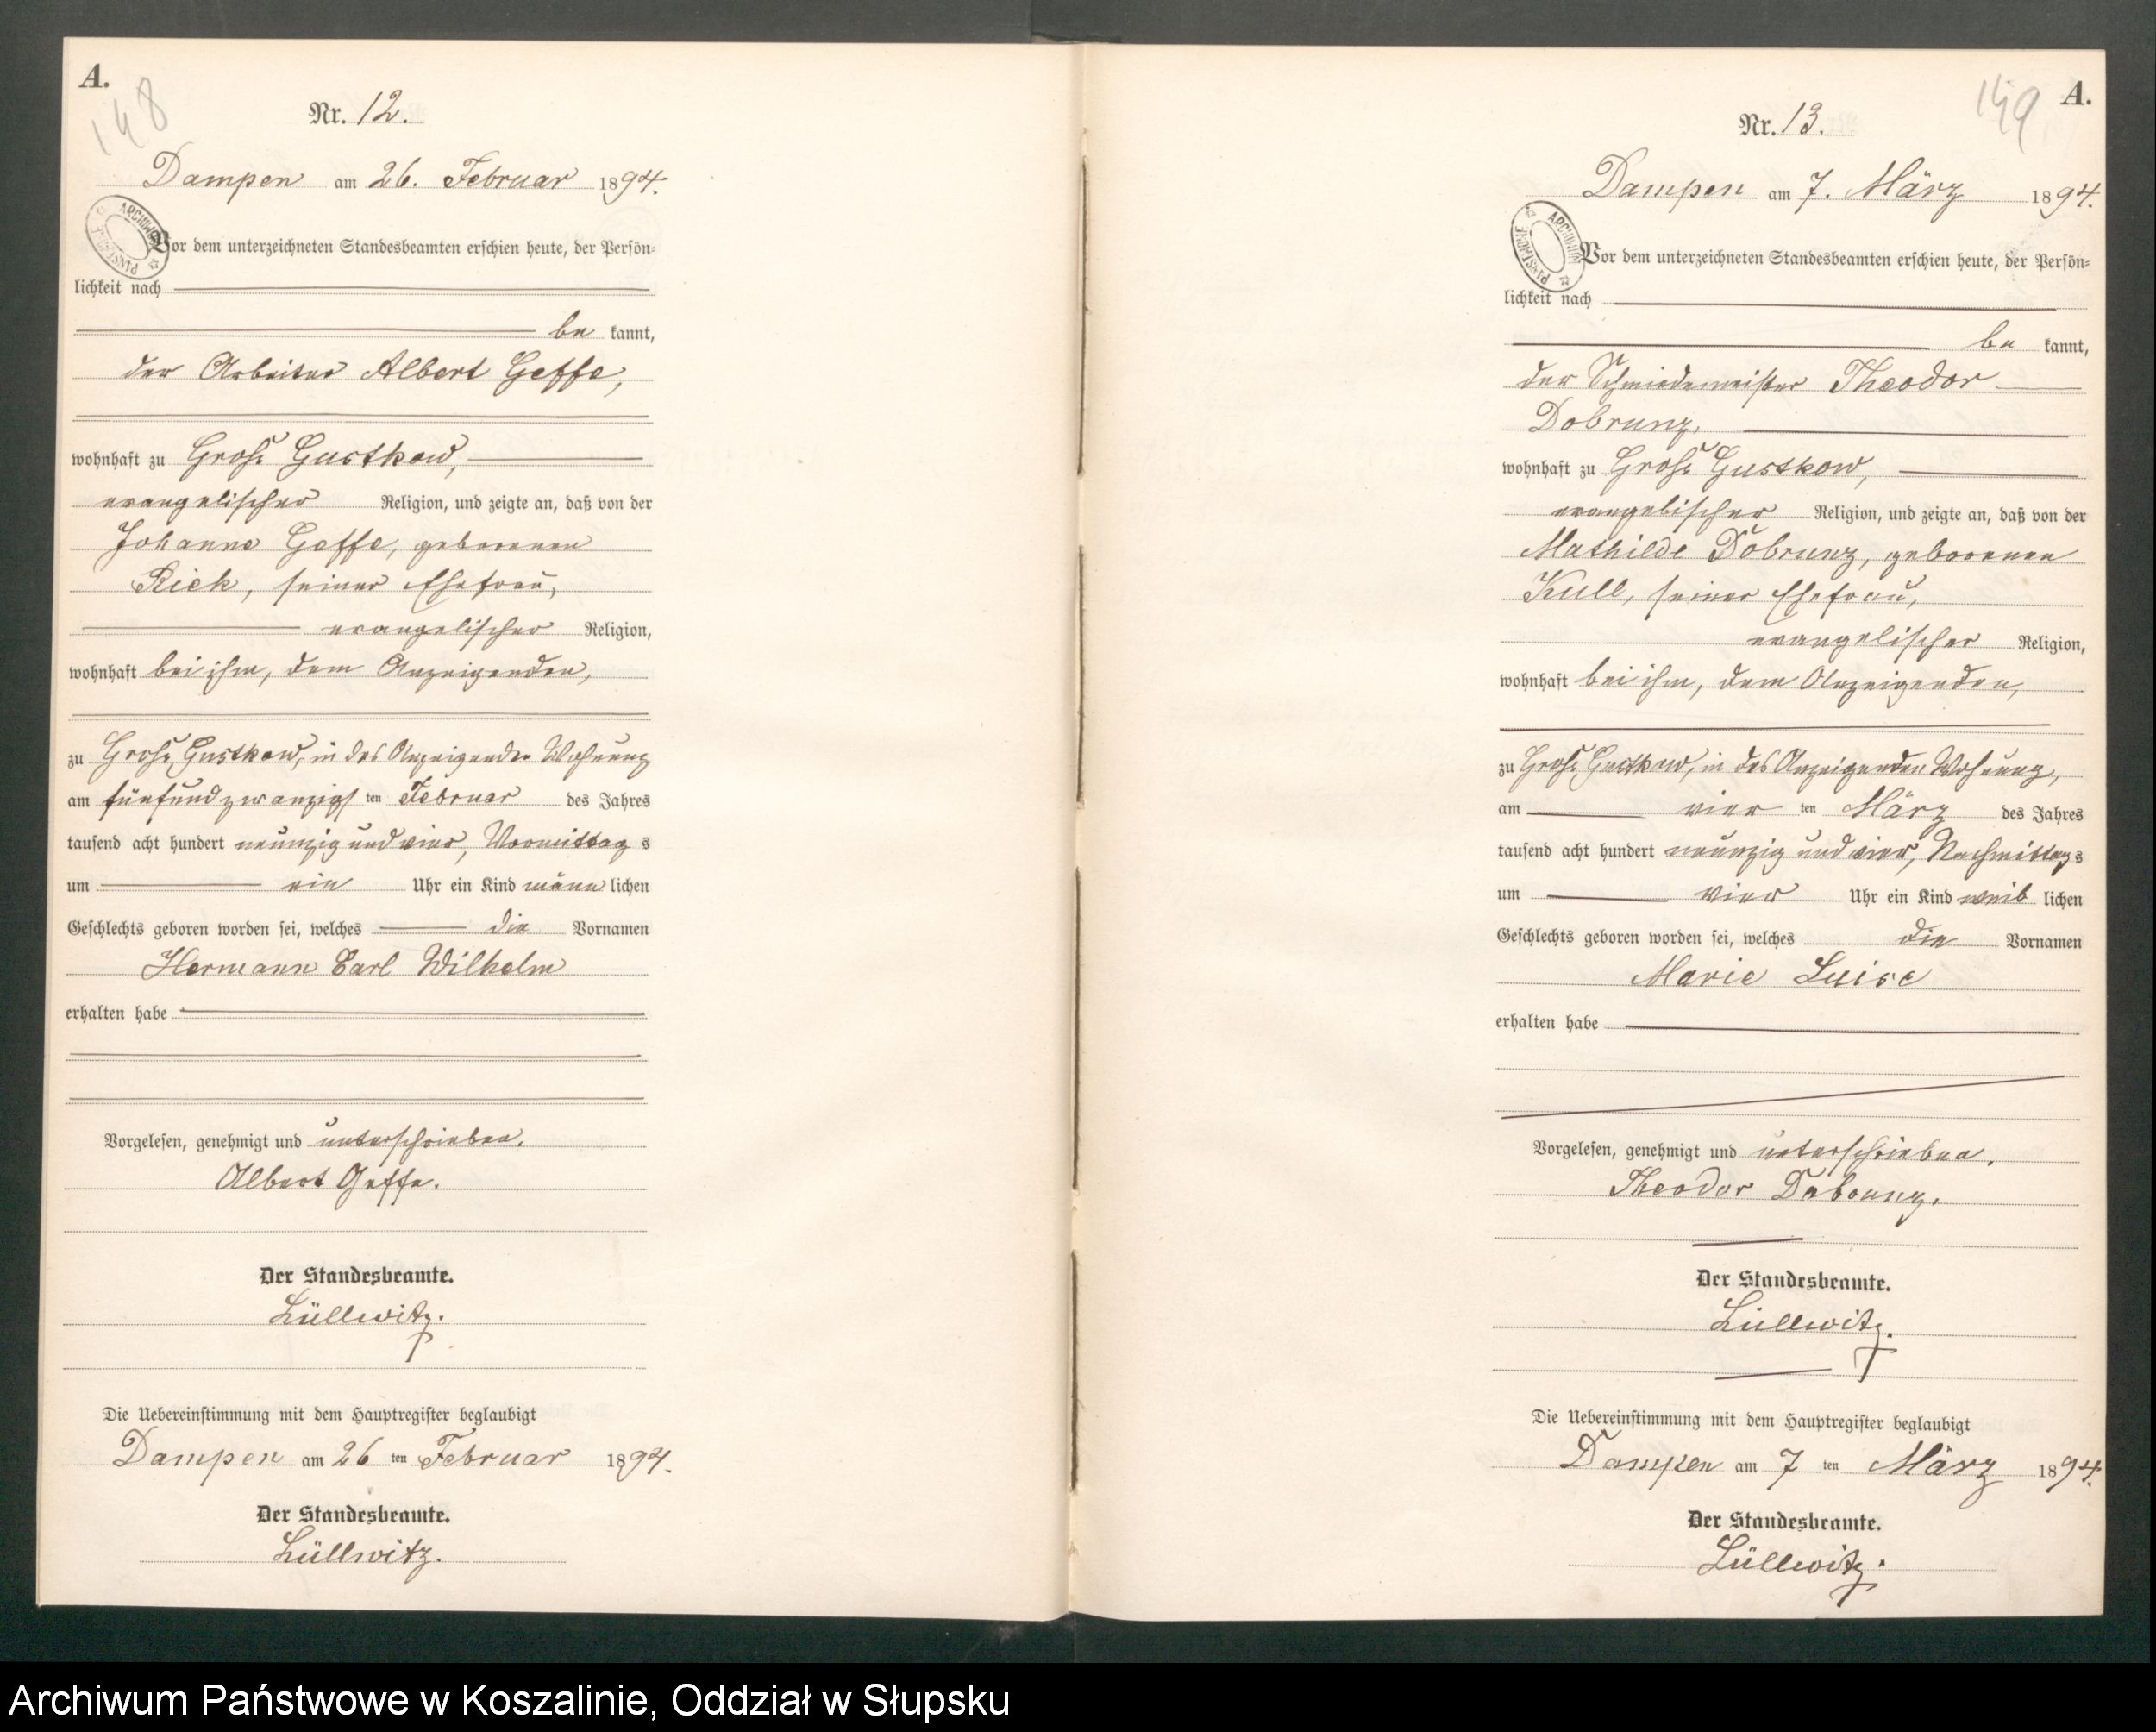 A.
148
Nr. 12.
Dampen am 26. Februar 1894.
Vor dem unterzeichneten Standesbeamten erschien heute, der Persön=
lichkeit nach
be kannt,
der Arbeiter Albert Geffe,
wohnhaft zu Groß Gustkow,
evangelischer Religion, und zeigte an, daß von der
Johanne Geffe, geborenen
Rick, seiner Ehefrau,
evangelischer Religion,
wohnhaft bei ihm, dem Anzeigenden,
zu Groß Gustkow, in des Anzeigenden Wohnung
am fünfundzwanzigs ten Februar des Jahres
tausend acht hundert neunzig und vier, Vormittag s
um ein Uhr ein Kind männ lichen
Geschlechts geboren worden sei, welches die Vornamen
Hermann Carl Wilhelm
erhalten habe
Vorgelesen, genehmigt und unterschrieben.
Albert Geffe.
Der Standesbeamte.
Lüllwitz.
Die Uebereinstimmung mit dem Hauptregister beglaubigt
Dampen am 26 ten Februar 1894.
Der Standesbeamte.
Lüllwitz.
A.
149
Nr. 13.
Dampen am 7. März 1894.
Vor dem unterzeichneten Standesbeamten erschien heute, der Persön=
lichkeit nach
be kannt,
der Schmiedemeister Theodor
Dobrunz,
wohnhaft zu Groß Gustkow,
evangelischer Religion, und zeigte an, daß von der
Mathilde Dobrunz, geborenen
Kull, seiner Ehefrau,
evangelischer Religion,
wohnhaft bei ihm, dem Anzeigenden,
zu Groß Gustkow, in des Anzeigenden Wohnung,
am vier ten März des Jahres
tausend acht hundert neunzig und vier, Nachmittag s
um vier Uhr ein Kind weib lichen
Geschlechts geboren worden sei, welches die Vornamen
Marie Luise
erhalten habe
Vorgelesen, genehmigt und unterschrieben.
Theodor Dobrunz.
Der Standesbeamte.
Lüllwitz.
Die Uebereinstimmung mit dem Hauptregister beglaubigt
Dampen am 7 ten März 1894.
Der Standesbeamte.
Lüllwitz.
Archiwum Państwowe w Koszalinie, Oddział w Słupsku